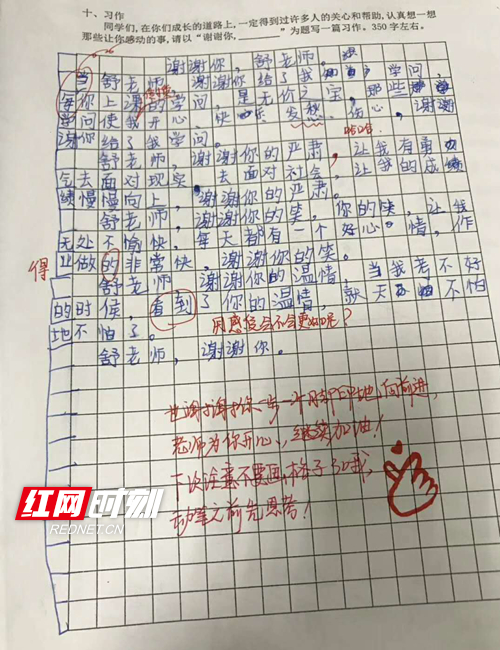 十、习作
同学们，在你们成长的道路上，一定得到过许多人的关心和帮助，认真想一想
那些让你感动的事，请以“谢谢你，________”为题写一篇习作。350字左右。
谢谢你，舒老师。
舒老师，谢谢你给了我学问，
每你上课的学问，是无价之宝，那些
学问使我开心、快乐、发愁、伤心，谢谢
谢你给了我学问。
哈哈
舒老师，谢谢你的严肃，让我有勇
气去面对现实，去面对社会，让我的成
绩慢慢向上，谢谢你的严肃。
舒老师，谢谢你的笑，你的笑，让我
无处不愉快，每天都有一个好心情，作
业做的非常快，谢谢你的笑。
得
舒老师，谢谢你的温情，当我老不好
的时候，看到了你的温情，就天不怕
地不怕了。
用感受会不会更好呢？
舒老师，谢谢你。
也谢谢你一步一个脚印地向前进，
老师为你开心，继续加油！
下次注意不要画格子哦，
动笔之前先思考！
红网时刻
REDNET.CN